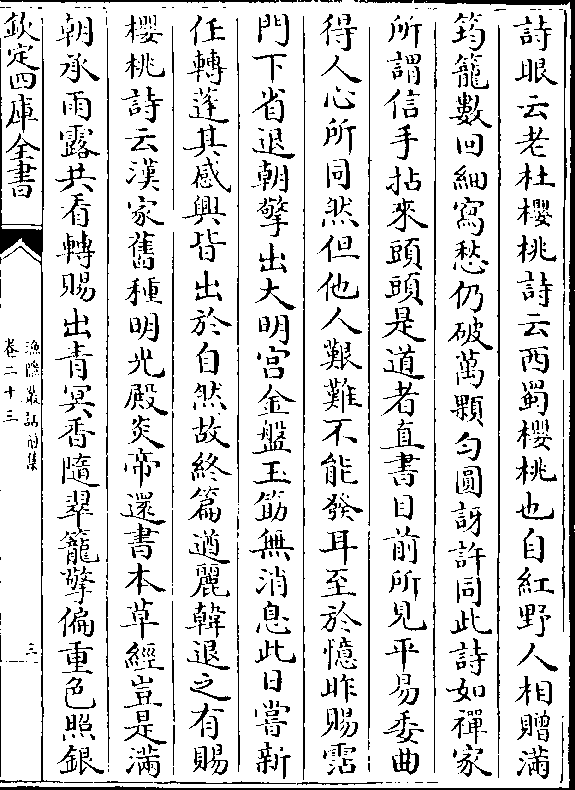 詩眼云老杜櫻桃詩云西蜀櫻桃也自紅野人相贈滿
筠籠數回細寫愁仍破萬顆勻圓訝許同此詩如禪家
所謂信手拈來頭頭是道者直書目前所見平易委曲
得人心所同然但他人艱難不能發耳至於憶昨賜霑
門下省退朝擎出大明宫金盤玉筯無消息此日嘗新
任轉蓬其感興皆出於自然故終篇遒麗韓退之有賜
櫻桃詩云漢家舊種明光殿炎帝還書本草經豈是滿
朝承雨露共看轉賜出青冥香隨翠籠擎偏重色照銀
欽定四庫全書
漁隱叢話前集
卷二十三
三